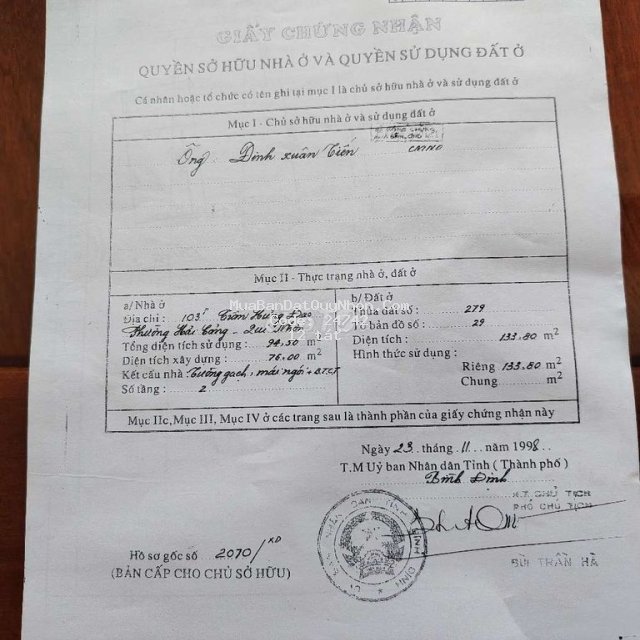 GIẤY CHỨNG NHẬN
QUYỀN SỞ HỮU NHÀ Ở VÀ QUYỀN SỬ DỤNG ĐẤT Ở
Cá nhân hoặc tổ chức có tên ghi tại mục I là chủ sở hữu nhà ở và sử dụng đất ở
Mục I - Chủ sở hữu nhà ở và sử dụng đất ở
Ông : Đinh Xuân Tiến CMND
Mục II - Thực trạng nhà ở, đất ở
a/ Nhà ở
Địa chỉ : 103 Trần Hưng Đạo
Phường Hải Cảng - Qui Nhơn
Tổng diện tích sử dụng : 94,50 m2
Diện tích xây dựng : 76,00 m2
Kết cấu nhà : Tường gạch, mái ngói + BTCT
Số tầng : 2
b/ Đất ở
Thửa đất số : 279
Tờ bản đồ số : 29
Diện tích : 133.80 m2
Hình thức sử dụng :
Riêng 133.80 m2
Chung m2
MuaBanDatQuyNhon
Mục IIc, Mục III, Mục IV ở các trang sau là thành phần của giấy chứng nhận này
Ngày 23 tháng 11 năm 1998
T.M Uỷ ban Nhân dân Tỉnh ( Thành phố )
Bình Định
K.T. CHỦ TỊCH
PHÓ CHỦ TỊCH
BÙI TRẦN HÀ
Hồ sơ gốc số 2070/KD
(BẢN CẤP CHO CHỦ SỞ HỮU)